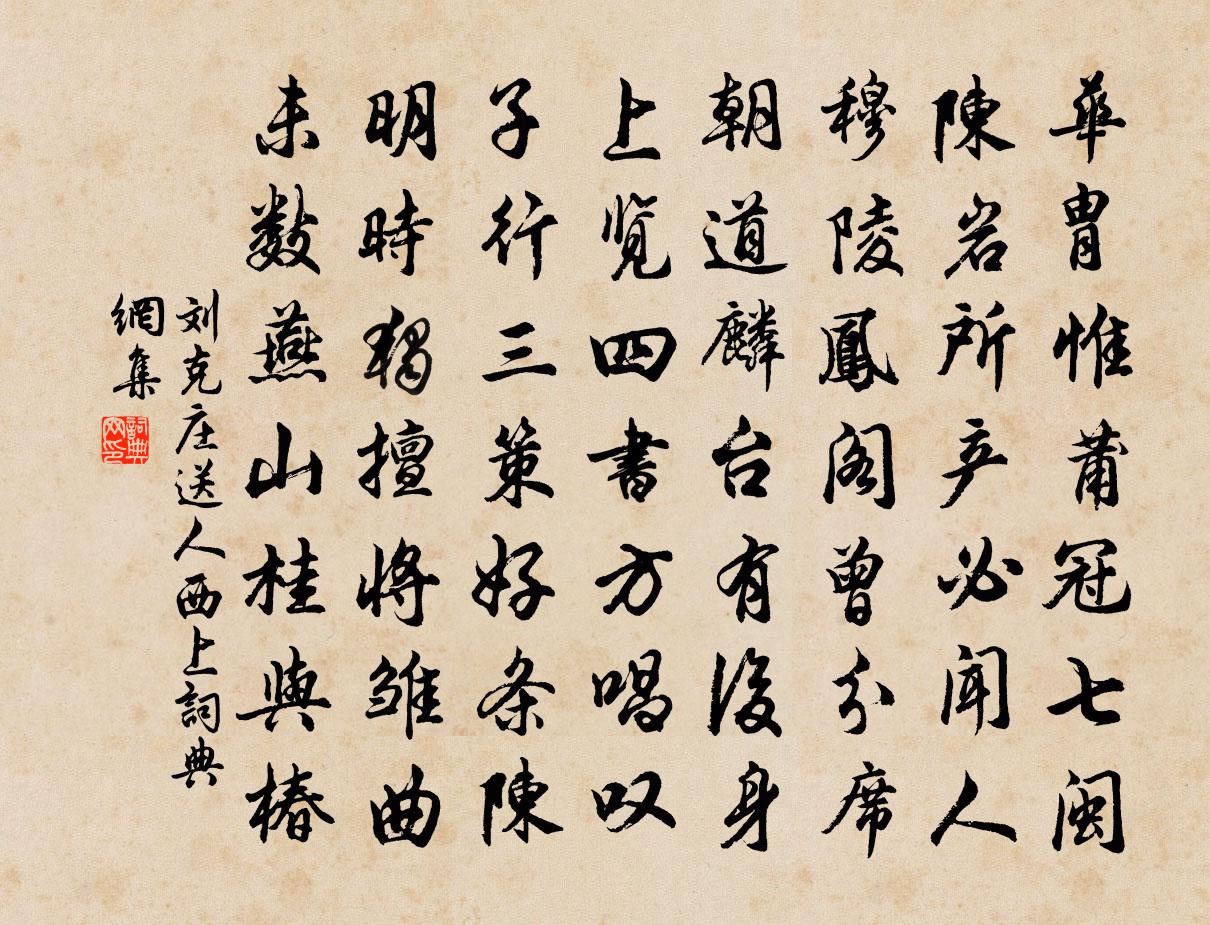 華胄惟莆冠七闽
陳岩所产必闻人
穆陵鳳阁曾分席
朝道麟台有後身
上览四書方唱叹
子行三策好条陳
明時独擅將雏曲
未数燕山桂與椿
刘克庄送人西上詞典
網集
詞典网印